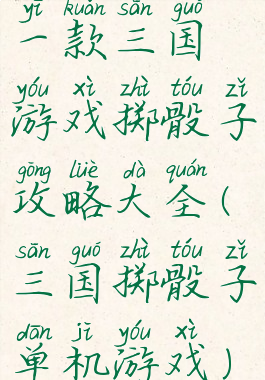 yī kuǎn sān guó
一款三国
yóu xì zhì tóu zǐ
游戏掷骰子
gōng lüè dà quán
攻略大全(
sān guó zhì tóu zǐ
三国掷骰子
dān jī yóu xì
单机游戏)